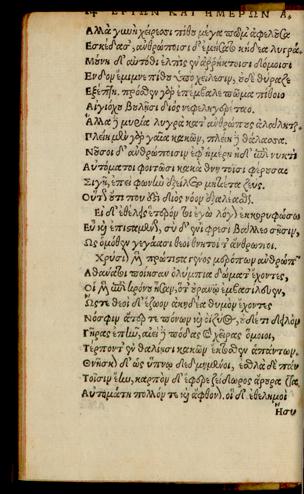 ΕΡΓΩΝ ΚΑΙ ΗΜΕΡΩΝ Α.
Αλλὰ γυνὴ χείρεσσι πίθου μέγα πῶμ' ἀφελοῦσα
Εσκέδασ', ἀνθρώποισι δ' ἐμήσατο κήδεα λυγρά.
Μούνη δ' αὐτόθι ἐλπὶς ἐν ἀρρήκτοισι δόμοισι
Ενδον ἔμιμνε πίθου ὑπὸ χείλεσιν, οὐδὲ θύραζε
Εξέπτη. πρόσθεν γὰρ ἐπέμβαλε πῶμα πίθοιο
Αἰγιόχου βουλῇσι διὸς νεφεληγερέταο.
Αλλα δὲ μυρία λυγρὰ κατ' ἀνθρώπους ἀλάληται.
Πλείη μὲν γὰρ γαῖα κακῶν, πλείη δὲ θάλασσα.
Νοῦσοι δ' ἀνθρώποισιν ἐφ' ἡμέρῃ ἠδ' ἐπὶ νυκτὶ
Αυτόματοι φοιτῶσι κακὰ θνητοῖσι φέρουσαι
Σιγῇ, ἐπεὶ φωνὴν ἐξείλετο μητίετα ζεύς.
Οὕτως οὔτι που ἔστι διὸς νόον ἐξαλέασθαι.
Εἰ δ' ἐθέλεις ἕτερόν τοι ἐγὼ λόγον ἐκκορυφώσω
Εὖ καὶ ἐπισταμένως, σὺ δ' ἐνὶ φρεσὶ βάλλεο σῇσιν,
Ως ὁμόθεν γεγάασι θεοὶ θνητοί τ' ἄνθρωποι.
Χρύσεον μὲν πρώτιστα γένος μερόπων ἀνθρώπων
Αθάνατοι ποίησαν ὀλύμπια δώματ' ἔχοντες,
Οἱ μὲν ἐπὶ κρόνου ἦσαν, ὅτ' οὐρανῷ ἐμβασίλευεν,
Ωστε θεοὶ δ' ἔζωον ἀκηδέα θυμὸν ἔχοντες
Νόσφιν ἄτερ τε πόνων καὶ ὀϊζύος, οὐδέ τι δειλὸν
Γῆρας ἐπῆν, αἰεὶ δὲ πόδας καὶ χεῖρας ὅμοιοι,
Τέρποντ' ἐν θαλίῃσι κακῶν ἔκτοσθεν ἁπάντων.
Θνῆσκον δ' ὡς ὕπνῳ δεδμημένοι, ἐσθλὰ δὲ πάντα
Τοῖσιν ἔην, καρπὸν δ' ἔφερε ζείδωρος ἄρουρα
Αυτομάτη πολλόν τε καὶ ἄφθονον, οἱ δ' ἐθελημοὶ
Ησυ